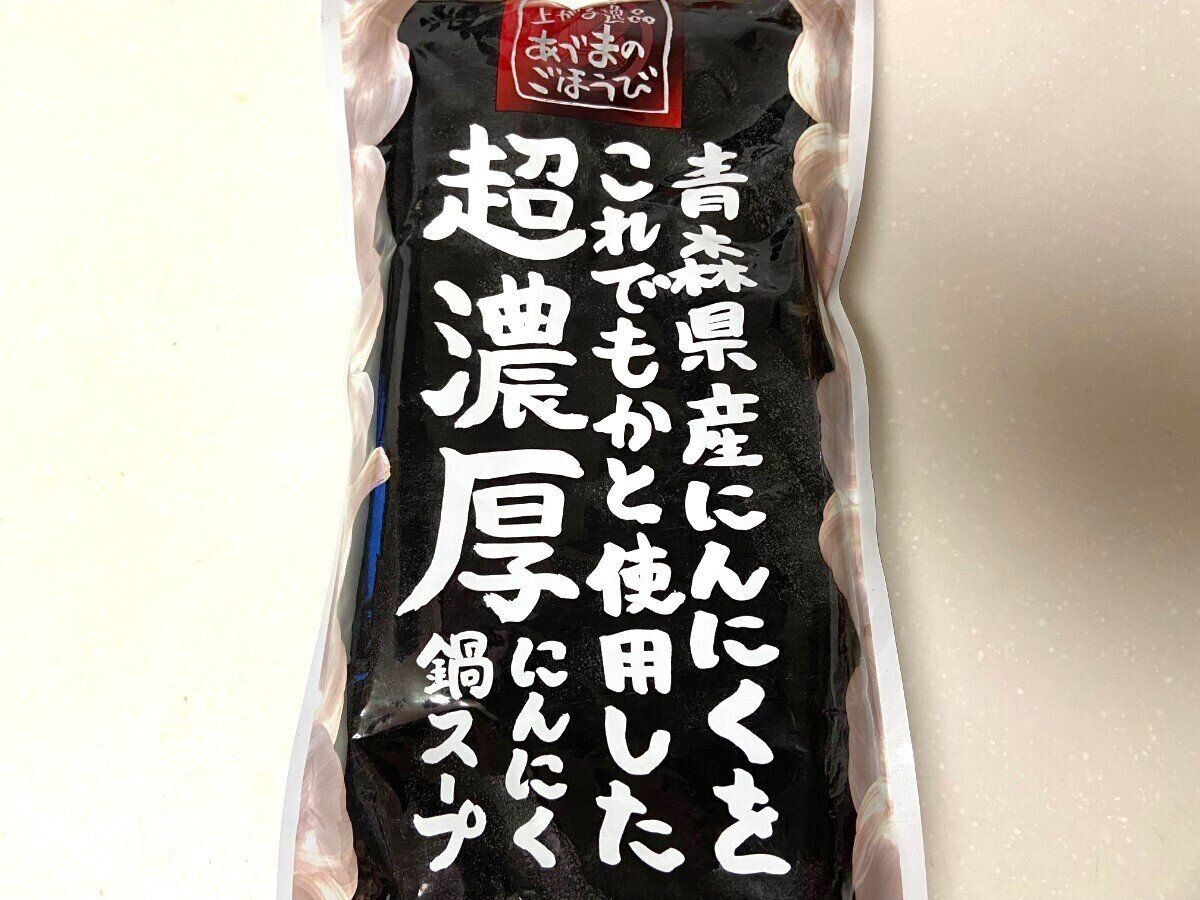 上がる逸品
あづまの
ごほうび
青森県産にんにくを
これでもかと使用した
超濃厚
にんにく
鍋スープ